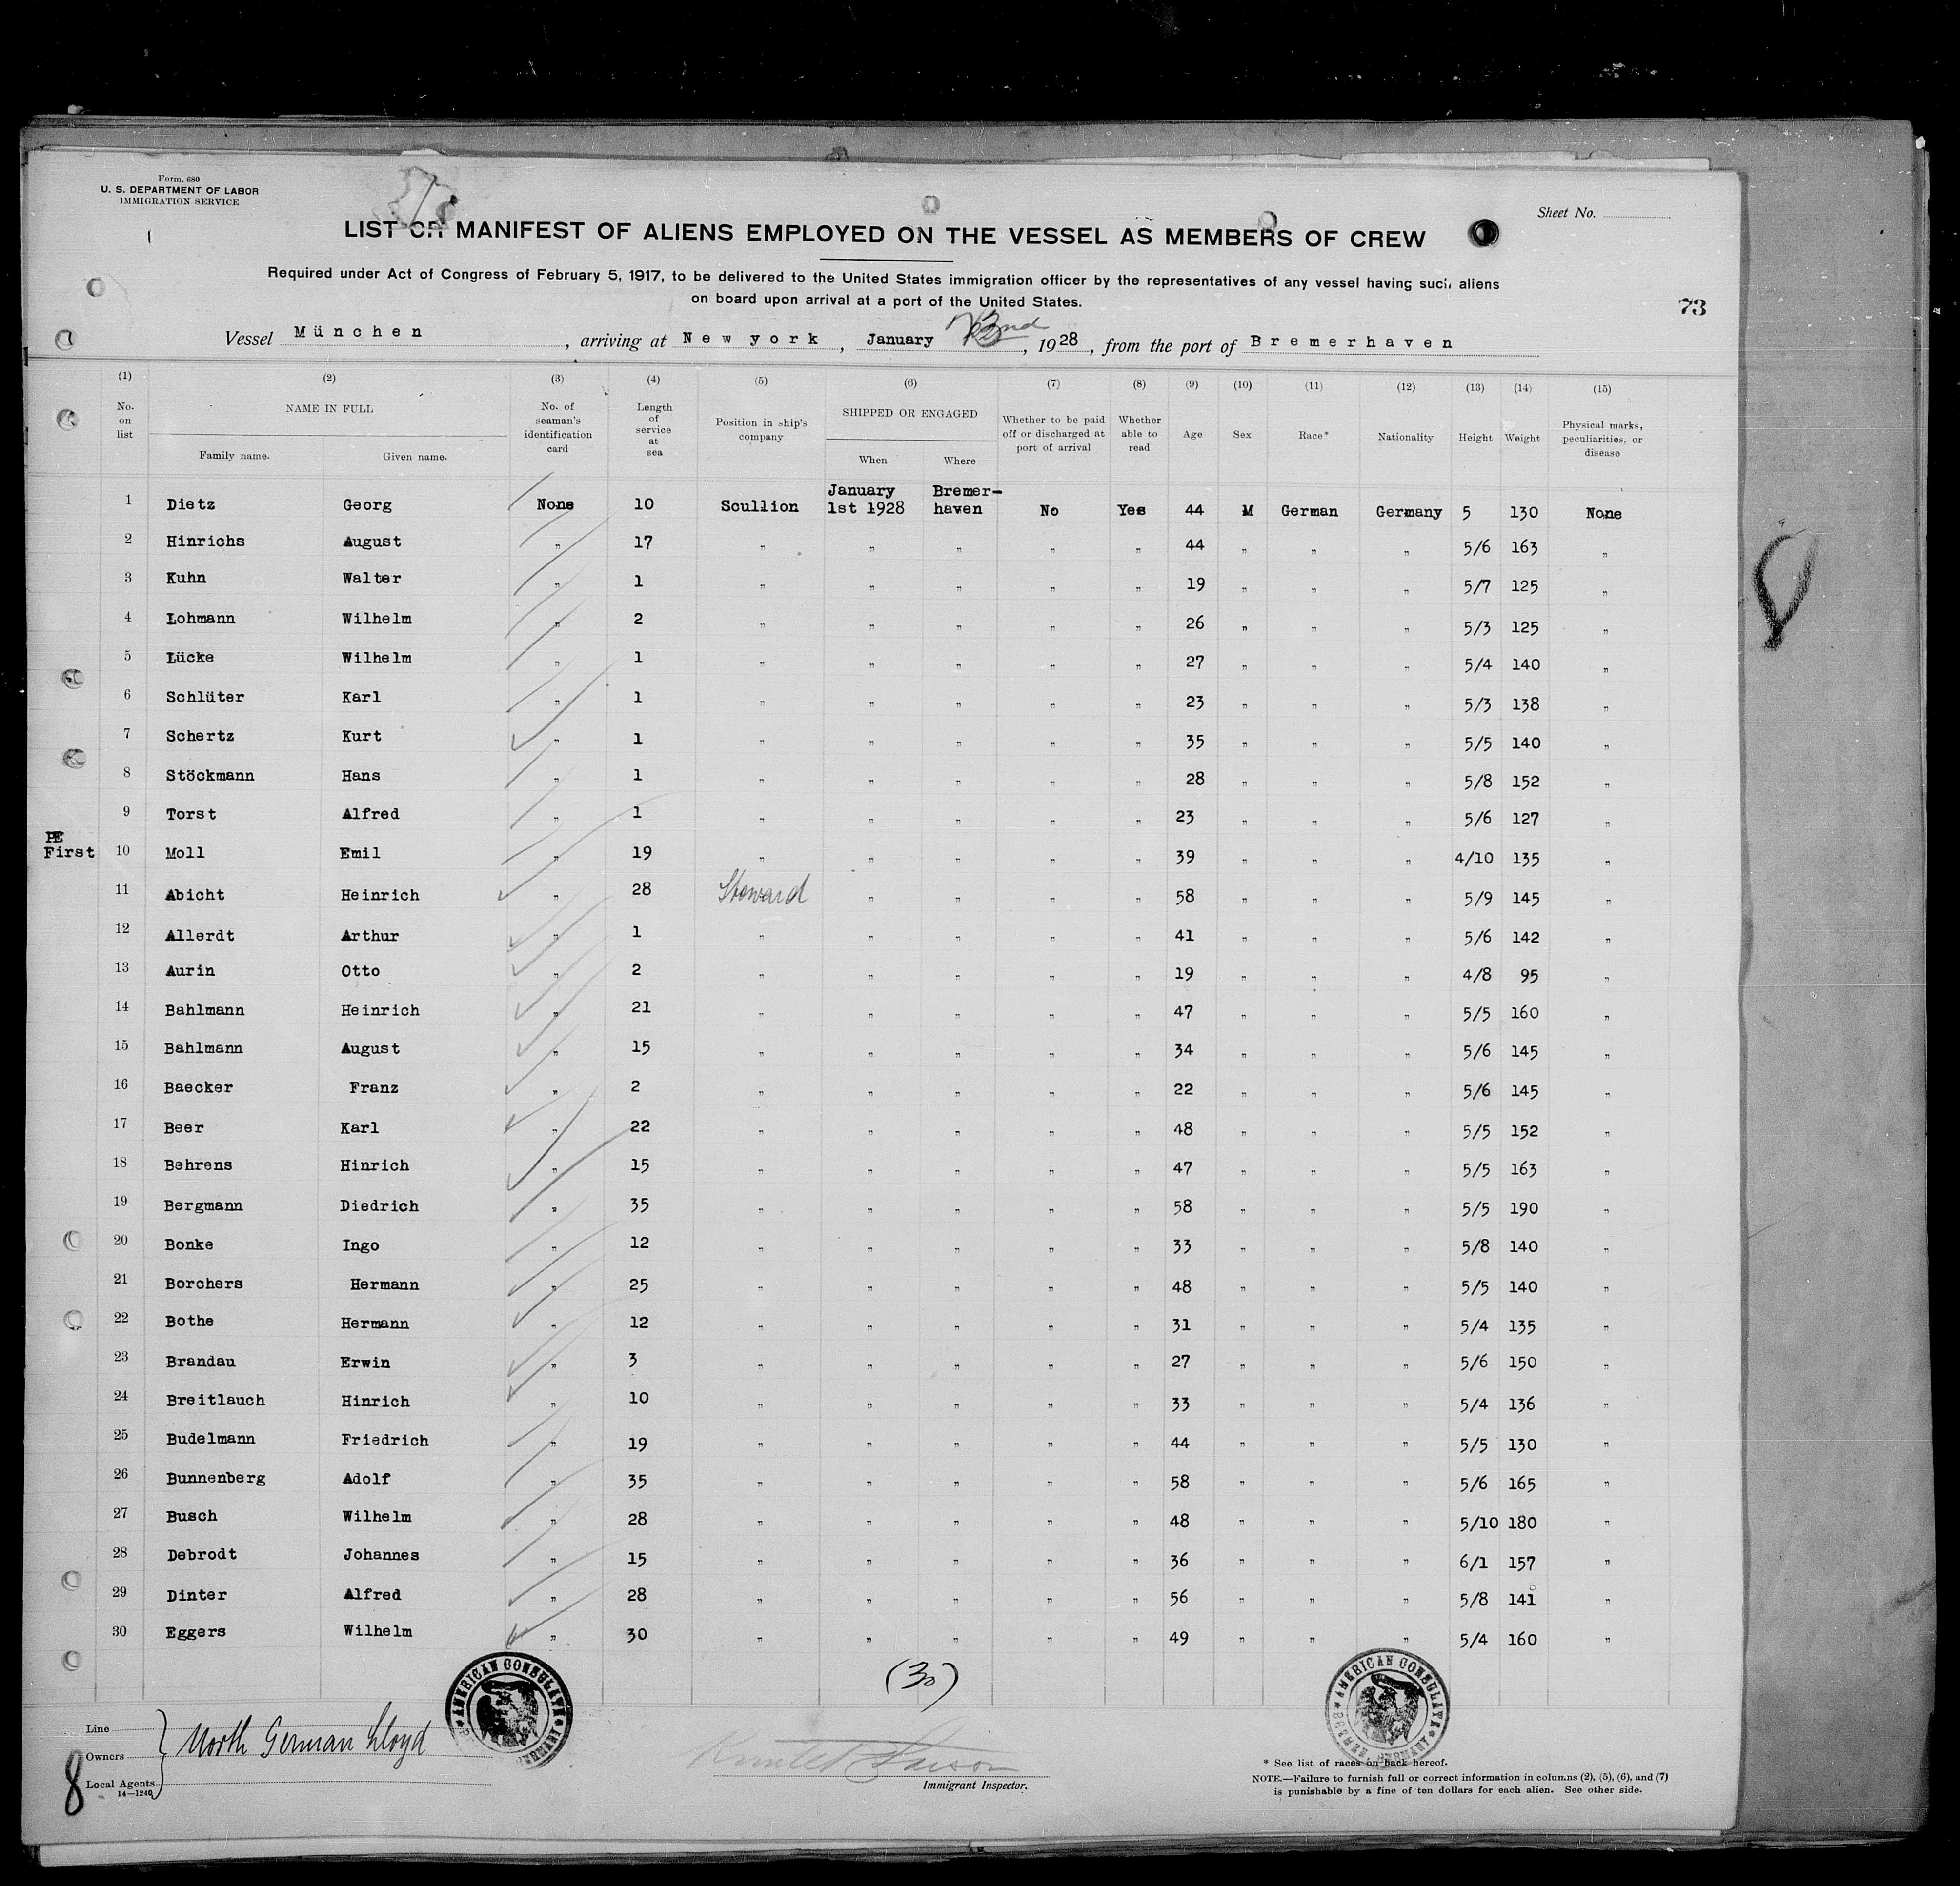 Form. 680
U. S. DEPARTMENT OF LABOR
IMMIGRATION SERVICE
Sheet No.
LIST OR MANIFEST OF ALIENS EMPLOYED ON THE VESSEL AS MEMBERS OF CREW
Required under Act of Congress of February 5, 1917, to be delivered to the United States immigration officer by the representatives of any vessel having such aliens
on board upon arrival at a port of the United States.
73
Vessel München , arriving at New york , January , 1928, from the port of Bremerhaven
(1) (2) (3) (4) (5) (6) (7) (8) (9) (10) (11) (12) (13) (14) (15)
No. on list NAME IN FULL Family name. Given name. No. of seaman's identification card Length of service at sea Position in ship's company SHIPPED OR ENGAGED When Where Whether to be paid off or discharged at port of arrival Whether able to read Age Sex Race* Nationality Height Weight Physical marks, peculiarities, or disease
1 Dietz Georg None 10 Scullion January 1st 1928 Bremer-haven No Yes 44 M German Germany 5 130 None
2 Hinrichs August " 17 " " " " " 44 " " " 5/6 163 "
3 Kuhn Walter " 1 " " " " " 19 " " " 5/7 125 "
4 Lohmann Wilhelm " 2 " " " " " 26 " " " 5/3 125 "
5 Lücke Wilhelm " 1 " " " " " 27 " " " 5/4 140 "
6 Schlüter Karl " 1 " " " " " 23 " " " 5/3 138 "
7 Schertz Kurt " 1 " " " " " 35 " " " 5/5 140 "
8 Stöckmann Hans " 1 " " " " " 28 " " " 5/8 152 "
9 Torst Alfred " 1 " " " " " 23 " " " 5/6 127 "
PE
First 10 Moll Emil " 19 " " " " " 39 " " " 4/10 135 "
11 Abicht Heinrich " 28 Steward " " " " 58 " " " 5/9 145 "
12 Allerdt Arthur " 1 " " " " " 41 " " " 5/6 142 "
13 Aurin Otto " 2 " " " " " 19 " " " 4/8 95 "
14 Bahlmann Heinrich " 21 " " " " " 47 " " " 5/5 160 "
15 Bahlmann August " 15 " " " " " 34 " " " 5/6 145 "
16 Baecker Franz " 2 " " " " " 22 " " " 5/6 145 "
17 Beer Karl " 22 " " " " " 48 " " " 5/5 152 "
18 Behrens Hinrich " 15 " " " " " 47 " " " 5/5 163 "
19 Bergmann Diedrich " 35 " " " " " 58 " " " 5/5 190 "
20 Bonke Ingo " 12 " " " " " 33 " " " 5/8 140 "
21 Borchers Hermann " 25 " " " " " 48 " " " 5/5 140 "
22 Bothe Hermann " 12 " " " " " 31 " " " 5/4 135 "
23 Brandau Erwin " 3 " " " " " 27 " " " 5/6 150 "
24 Breitlauch Hinrich " 10 " " " " " 33 " " " 5/4 136 "
25 Budelmann Friedrich " 19 " " " " " 44 " " " 5/5 130 "
26 Bunnenberg Adolf " 35 " " " " " 58 " " " 5/6 165 "
27 Busch Wilhelm " 28 " " " " " 48 " " " 5/10 180 "
28 Debrodt Johannes " 15 " " " " " 36 " " " 6/1 157 "
29 Dinter Alfred " 28 " " " " " 56 " " " 5/8 141 "
30 Eggers Wilhelm " 30 " " " " " 49 " " " 5/4 160 "
(30)
AMERICAN CONSULATE
AMERICAN CONSULATE
Line
Owners
Local Agents
North German Lloyd
14—1240
8
Immigrant Inspector.
* See list of races on back hereof.
NOTE.—Failure to furnish full or correct information in columns (2), (5), (6), and (7)
is punishable by a fine of ten dollars for each alien. See other side.